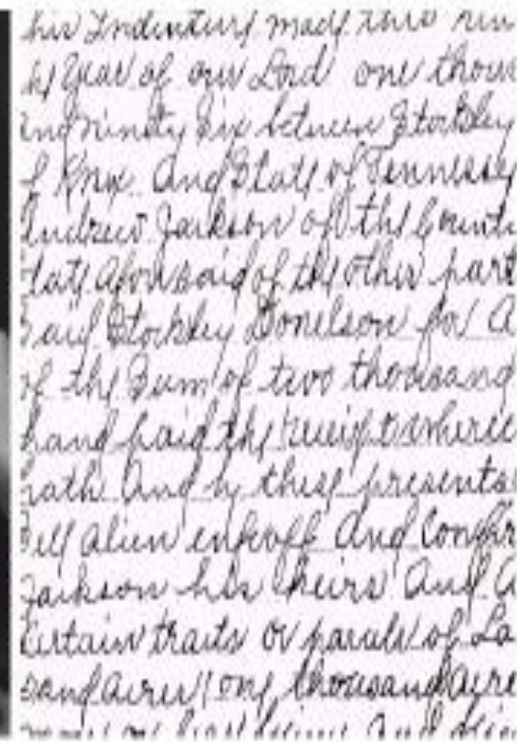 his Indenture made this nin
he year of our Lord one thous
and ninety six between Stockley
f Knox And State of Tennessey
Andrew Jackson of the Counti
tate aforesaid of the other part
Said Stockley Donelson for A
of the Sum of two thousand
hand paid the receipt where
hath And by these presents
Sell alien enfeoff And Confir
Jackson his heirs And A
Certain tracts or parcels of La
sand acres one thousand acre